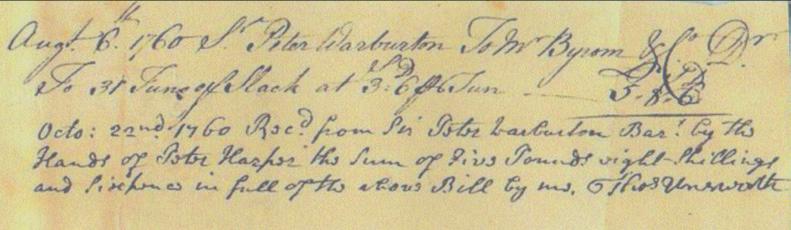 Augt. 6th. 1760 Sr. Peter Warburton To Mr Byrom & Co Dr
To 31 Tuns of Slack at 3s:6D ₱ Tun £5.8.6
Octo: 22nd. 1760 Recd. from Sir Peter Warburton Bart. by the
Hands of Peter Harper the Sum of Five Pounds eight Shillings
and Sixpence in full of the above Bill by me, Thos Unsworth